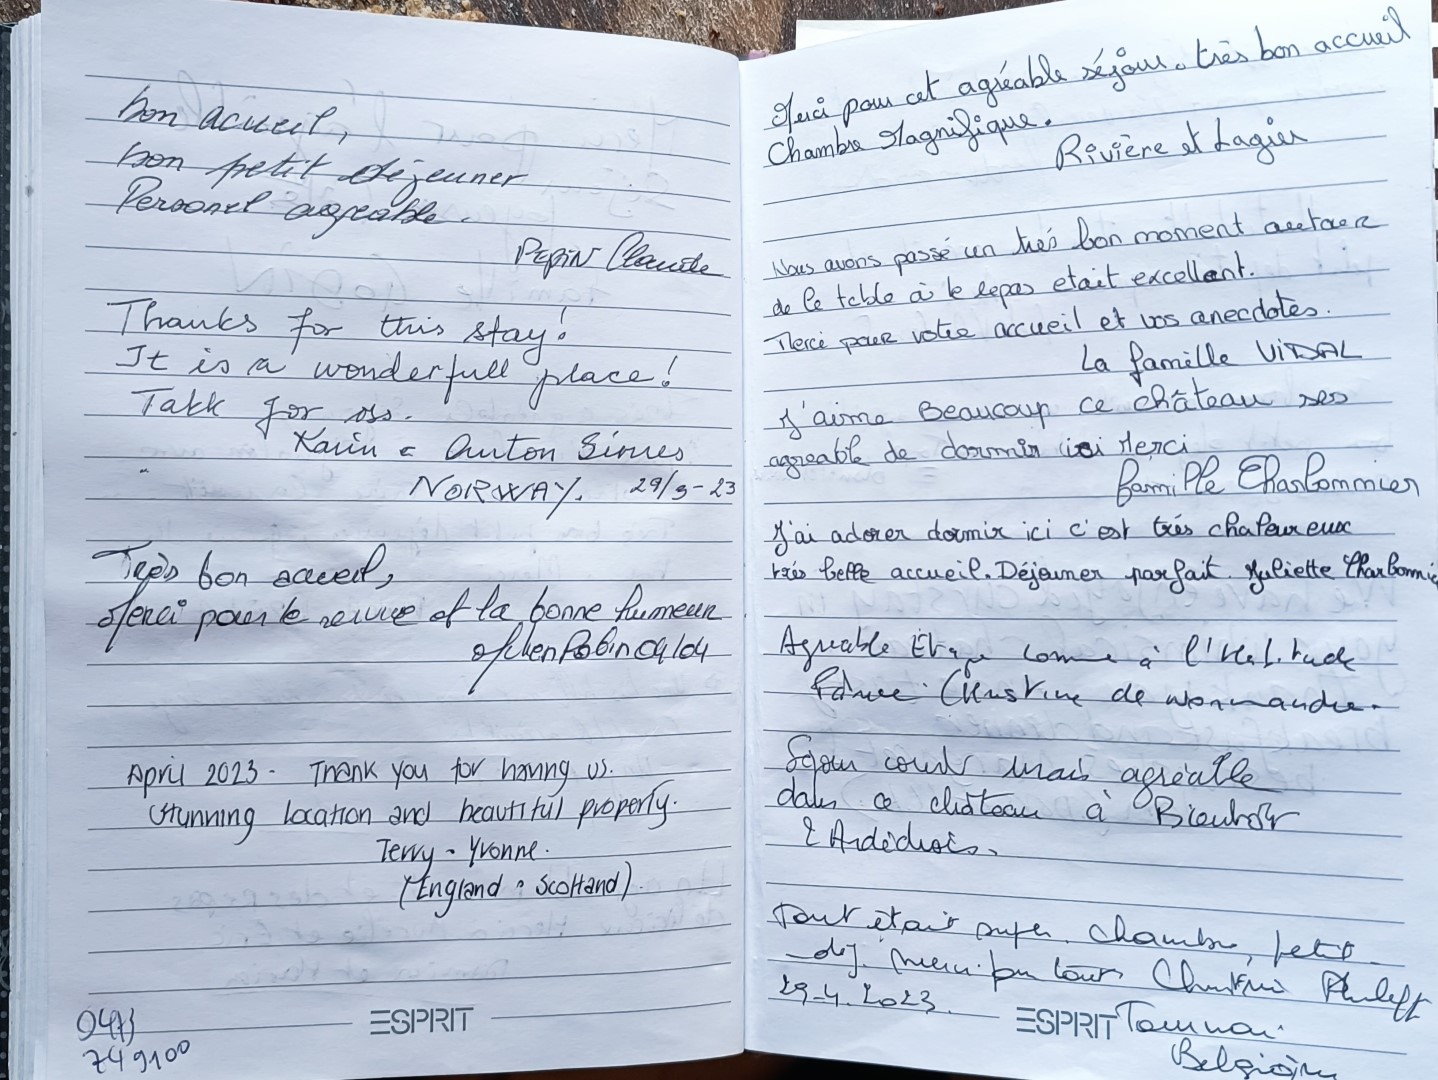 bon acueil,
bon petit déjeuner
Personel agreable.
PEPIN Claude
Thanks for this stay!
It is a wonderfull place!
Takk for oss.
Karin & Anton
NORWAY. 29/3-23
Très bon acceuil,
Merci pour le et la bonne humeur
Robin 04/04
April 2023 - Thank you for having us.
Stunning location and beautiful property.
Terry & Yvonne.
(England & Scotland).
0473
749100
ESPRIT
Merci pour cet agréable séjour. très bon accueil
Chambre Magnifique.
Rivière et Lagier
Nous avons passé un trés bon moment autour
de la table à le repas etait excellent.
Merci pour votre accueil et vos anecdotes.
La famille VIDAL
J'aime Beaucoup ce château
agreable de dormir ici Merci
famille Charbonnier
J'ai adorer dormir ici c'est trés chaleureux
trés belle accueil. Déjeuner parfait. Juliette Charbonnie
Agreable Étape comme à l'Habitude
Christine de Normandie.
Séjour court mais agréable
dans ce château à
2 Ardéchois.
Tout était super. Chambre, petit
-dej. Merci pour tout
29-4.2023.
ESPRIT
Tournai